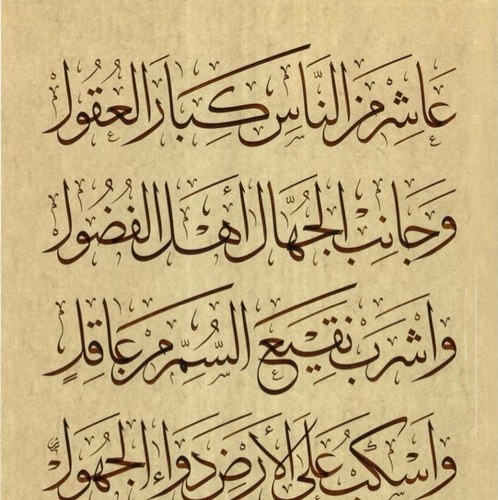 عَاشِر مِنَ النَّاسِ كِبَارَ العُقُول
وَجَانِبِ الجُهَّالَ أَهْلَ الفُضُول
وَاشْرَبْ نَقِيعَ السُّمِّ مِن عَاقِلٍ
وَاسْكُبْ عَلَى الأَرْضِ دَوَاءَ الجَهُول